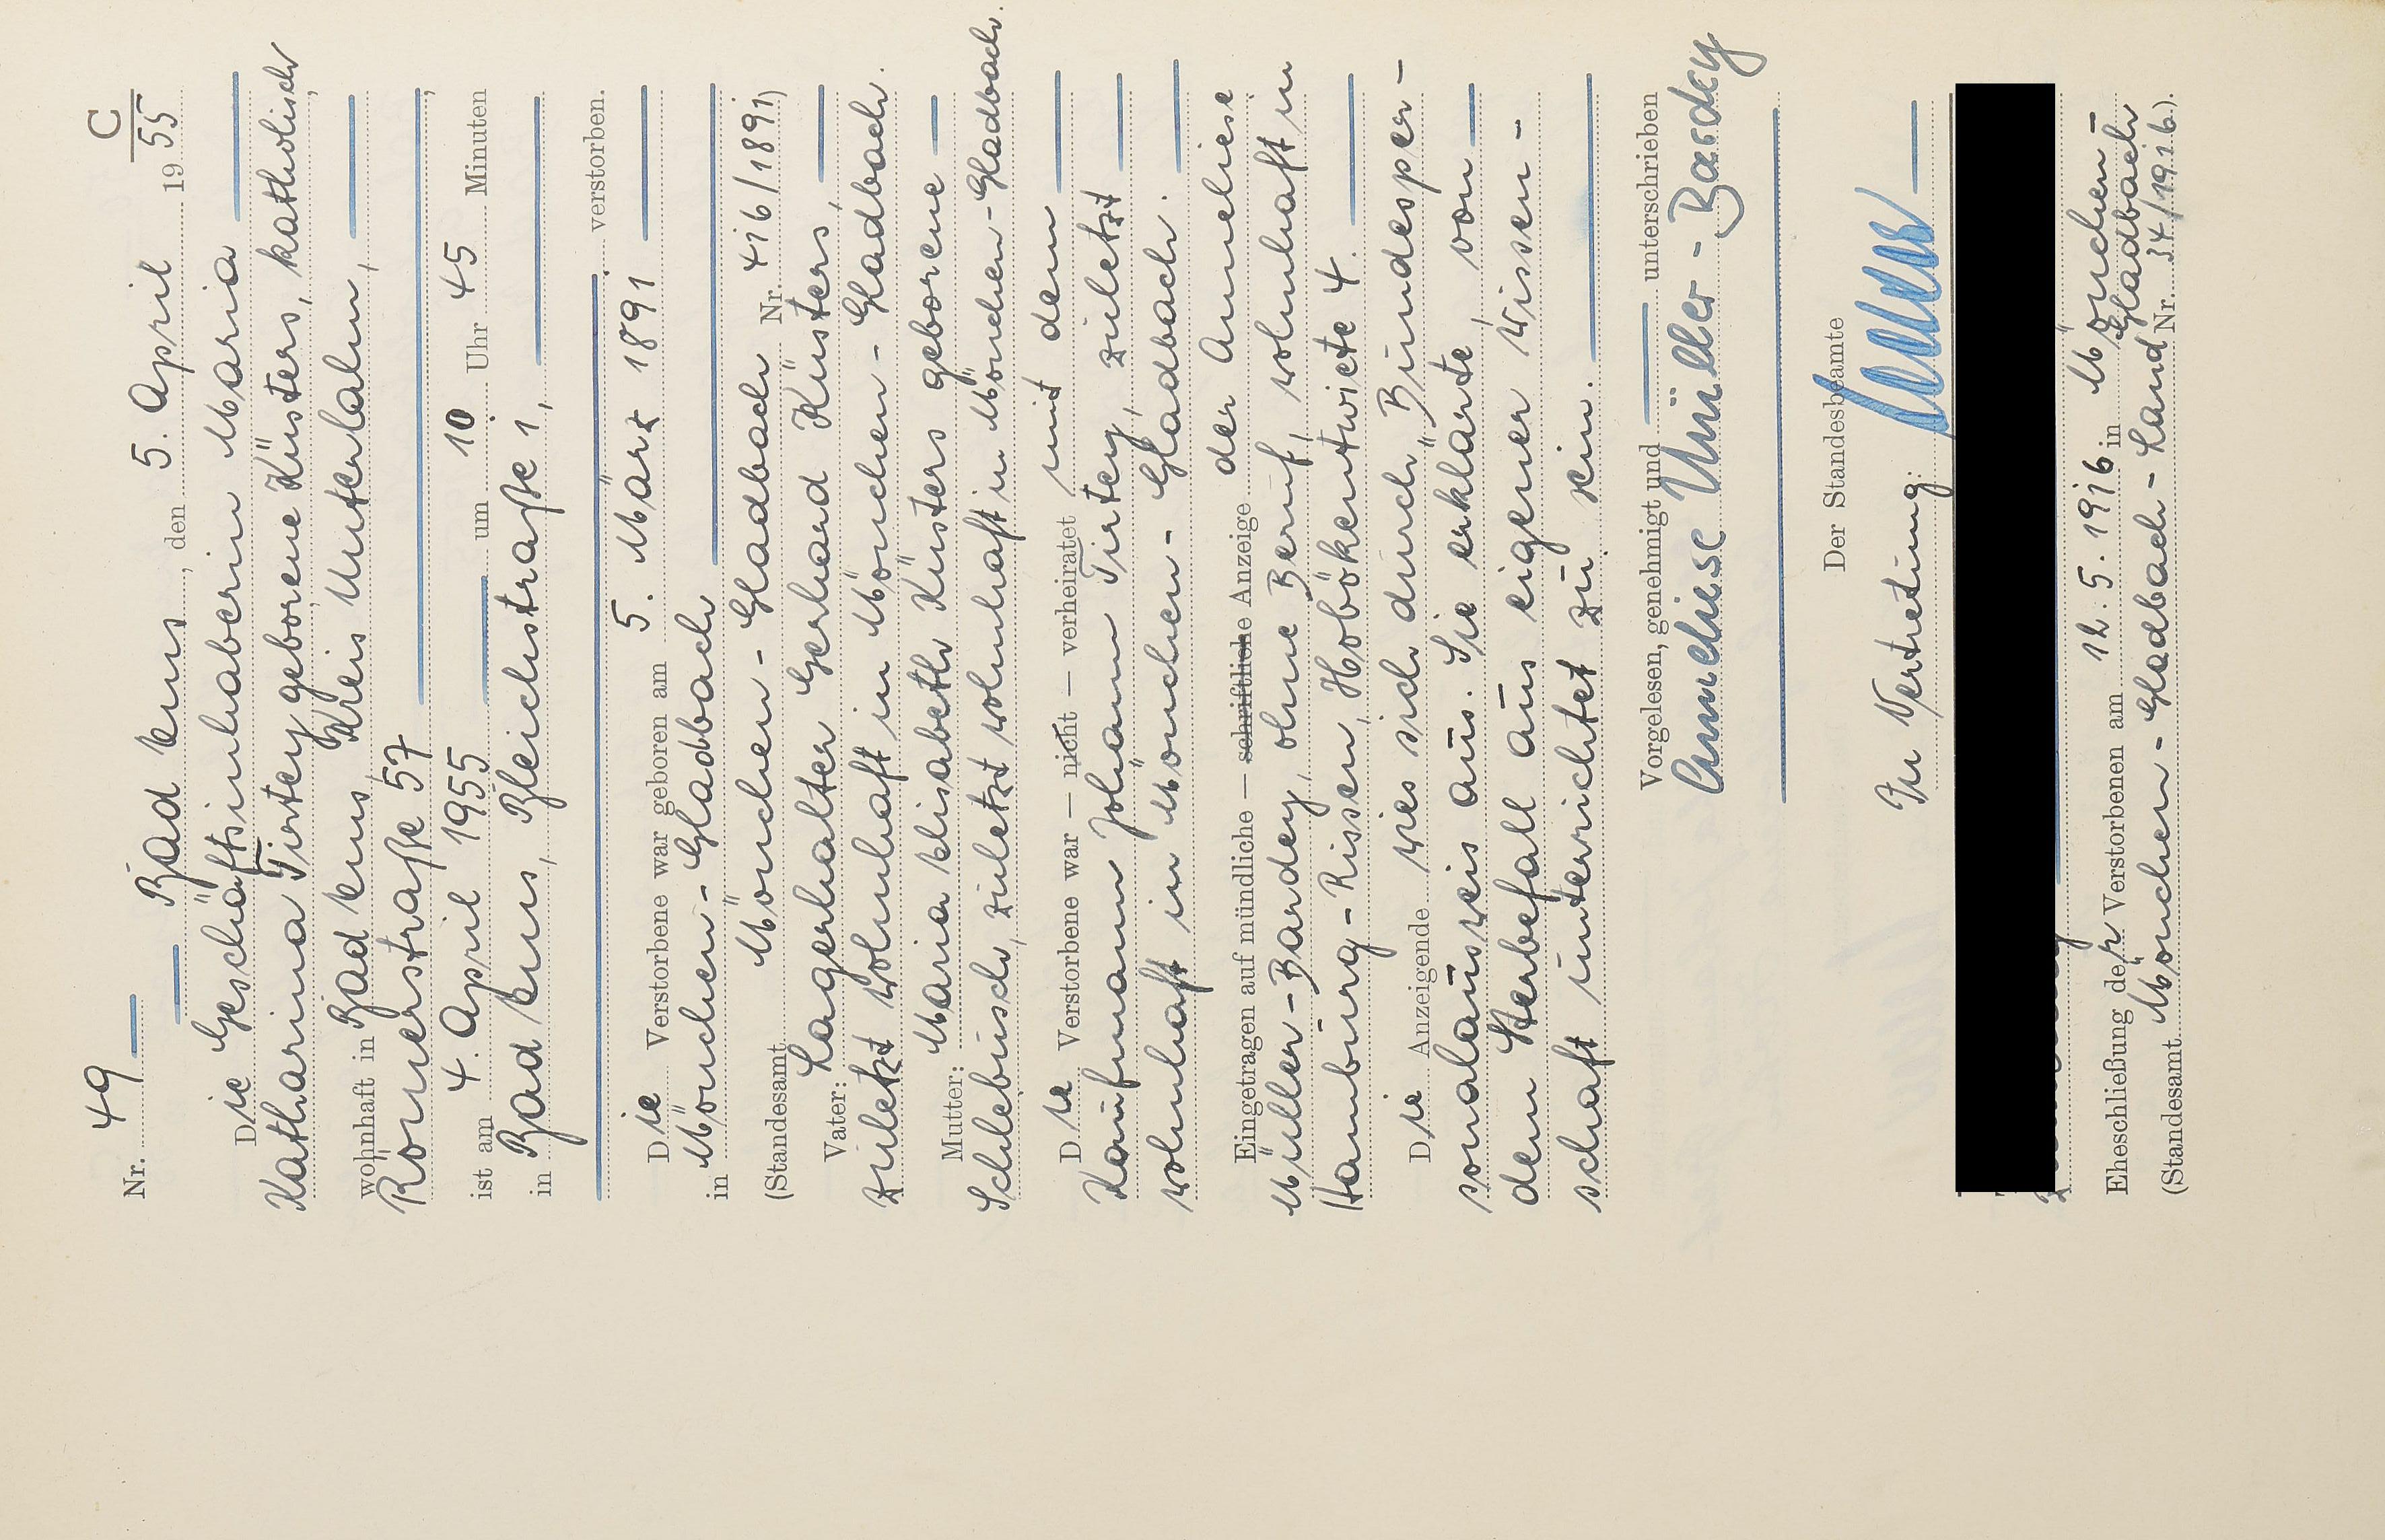 C
Nr. 49
Bad Ems, den 5. April 19 55
Die Geschäftsinhaberin Maria
Katharina Tirtey geborene Küsters, katholisch,
wohnhaft in Bad Ems, Kreis Unterlahn,
Römerstraße 57,
ist am 4. April 1955 um 10 Uhr 45 Minuten
in Bad Ems, Bleichstraße 1,
verstorben.
Die Verstorbene war geboren am 5. März 1891
in Mönchen-Gladbach
(Standesamt Mönchen-Gladbach Nr. 416/1891)
Vater: Lagerhalter Gerhard Küsters,
zuletzt wohnhaft in Mönchen-Gladbach.
Mutter: Maria Elisabeth Küsters geborene
Schlebusch, zuletzt wohnhaft in Mönchen-Gladbach.
Die Verstorbene war — nicht — verheiratet mit dem
Kaufmann Johann Tirtey, zuletzt
wohnhaft in Mönchen-Gladbach.
Eingetragen auf mündliche — schriftliche Anzeige der Anneliese
Müller-Bardey, ohne Beruf, wohnhaft in
Hamburg-Rissen, Hobökentwiete 4.
Die Anzeigende wies sich durch „Bundesper-
sonalausweis aus. Sie erklärte, von
dem Sterbefall aus eigener Wissen-
schaft unterrichtet zu sein.
Vorgelesen, genehmigt und unterschrieben
Anneliese Müller-Bardey
Der Standesbeamte
In Vertretung:
Eheschließung der Verstorbenen am 12.5.1916 in Mönchen-
Gladbach
(Standesamt Mönchen-Gladbach-Land Nr. 34/1916).